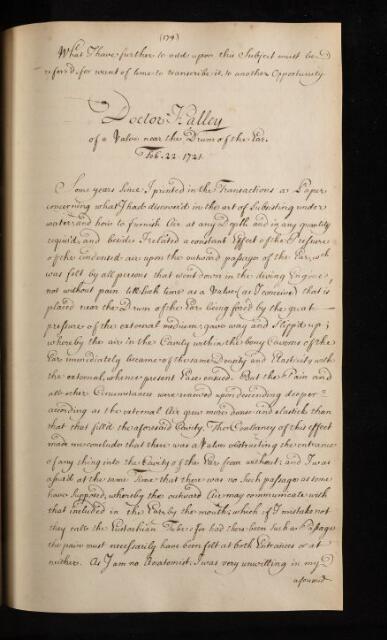 (174)
What I have further to add upon this Subject must be
referd, for want of time to transcribe it, to another Opportunity
Doctor Halley
of a Valve near the Drum of the Ear.
Feb. 22. 1721.
Some years since I printed in the Transactions a Paper
concerning what I had discover'd in the art of Subsisting under
water and how to furnish Air at any Depth and in any quantity
requir'd, and besides I related a constant Effect of the Pressure
of the condensed air upon the outward passage of the Ear, wch
was felt by all persons that went down in the diving Engine,
not without pain till such time as a Valve (as I conceive) that is
placed near the Drum of the Ear being forced by the great
pressure of the external medium, gave way and slipp'd up;
whereby the air in the Cavity within the bony Caverns of the
Ear immediately became of the same Density and Elasticity with
the external, whence present Ease ensued. But the Pain and
all other Circumstances were renewed upon descending deeper
according as the external Air grew more dense and elastick than
that that fill'd the aforesaid Cavity. The Constancy of this effect
made me conclude that there was a Valve obstructing the entrance
of any thing into the Cavity of the Ear from without; and I was
apt at the same Time that there was no such passage as some
have supposed, whereby the outward Air may communicate with
that included in the Ear by the mouth, which if I mistake not
they calle the Eustachian Tube; for had there been such a Passage
the pain must necessarily have been felt at both Entrances or at
neither. As I am no Anatomist, I was very unwilling in my